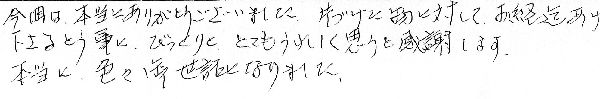 今回は、本当にありがとうございました。片づけに物に対して、お経迄あげ
下さるとう事に、びっくりと、とてもうれしく思うと感謝します。
本当に、色々お世話になりました。